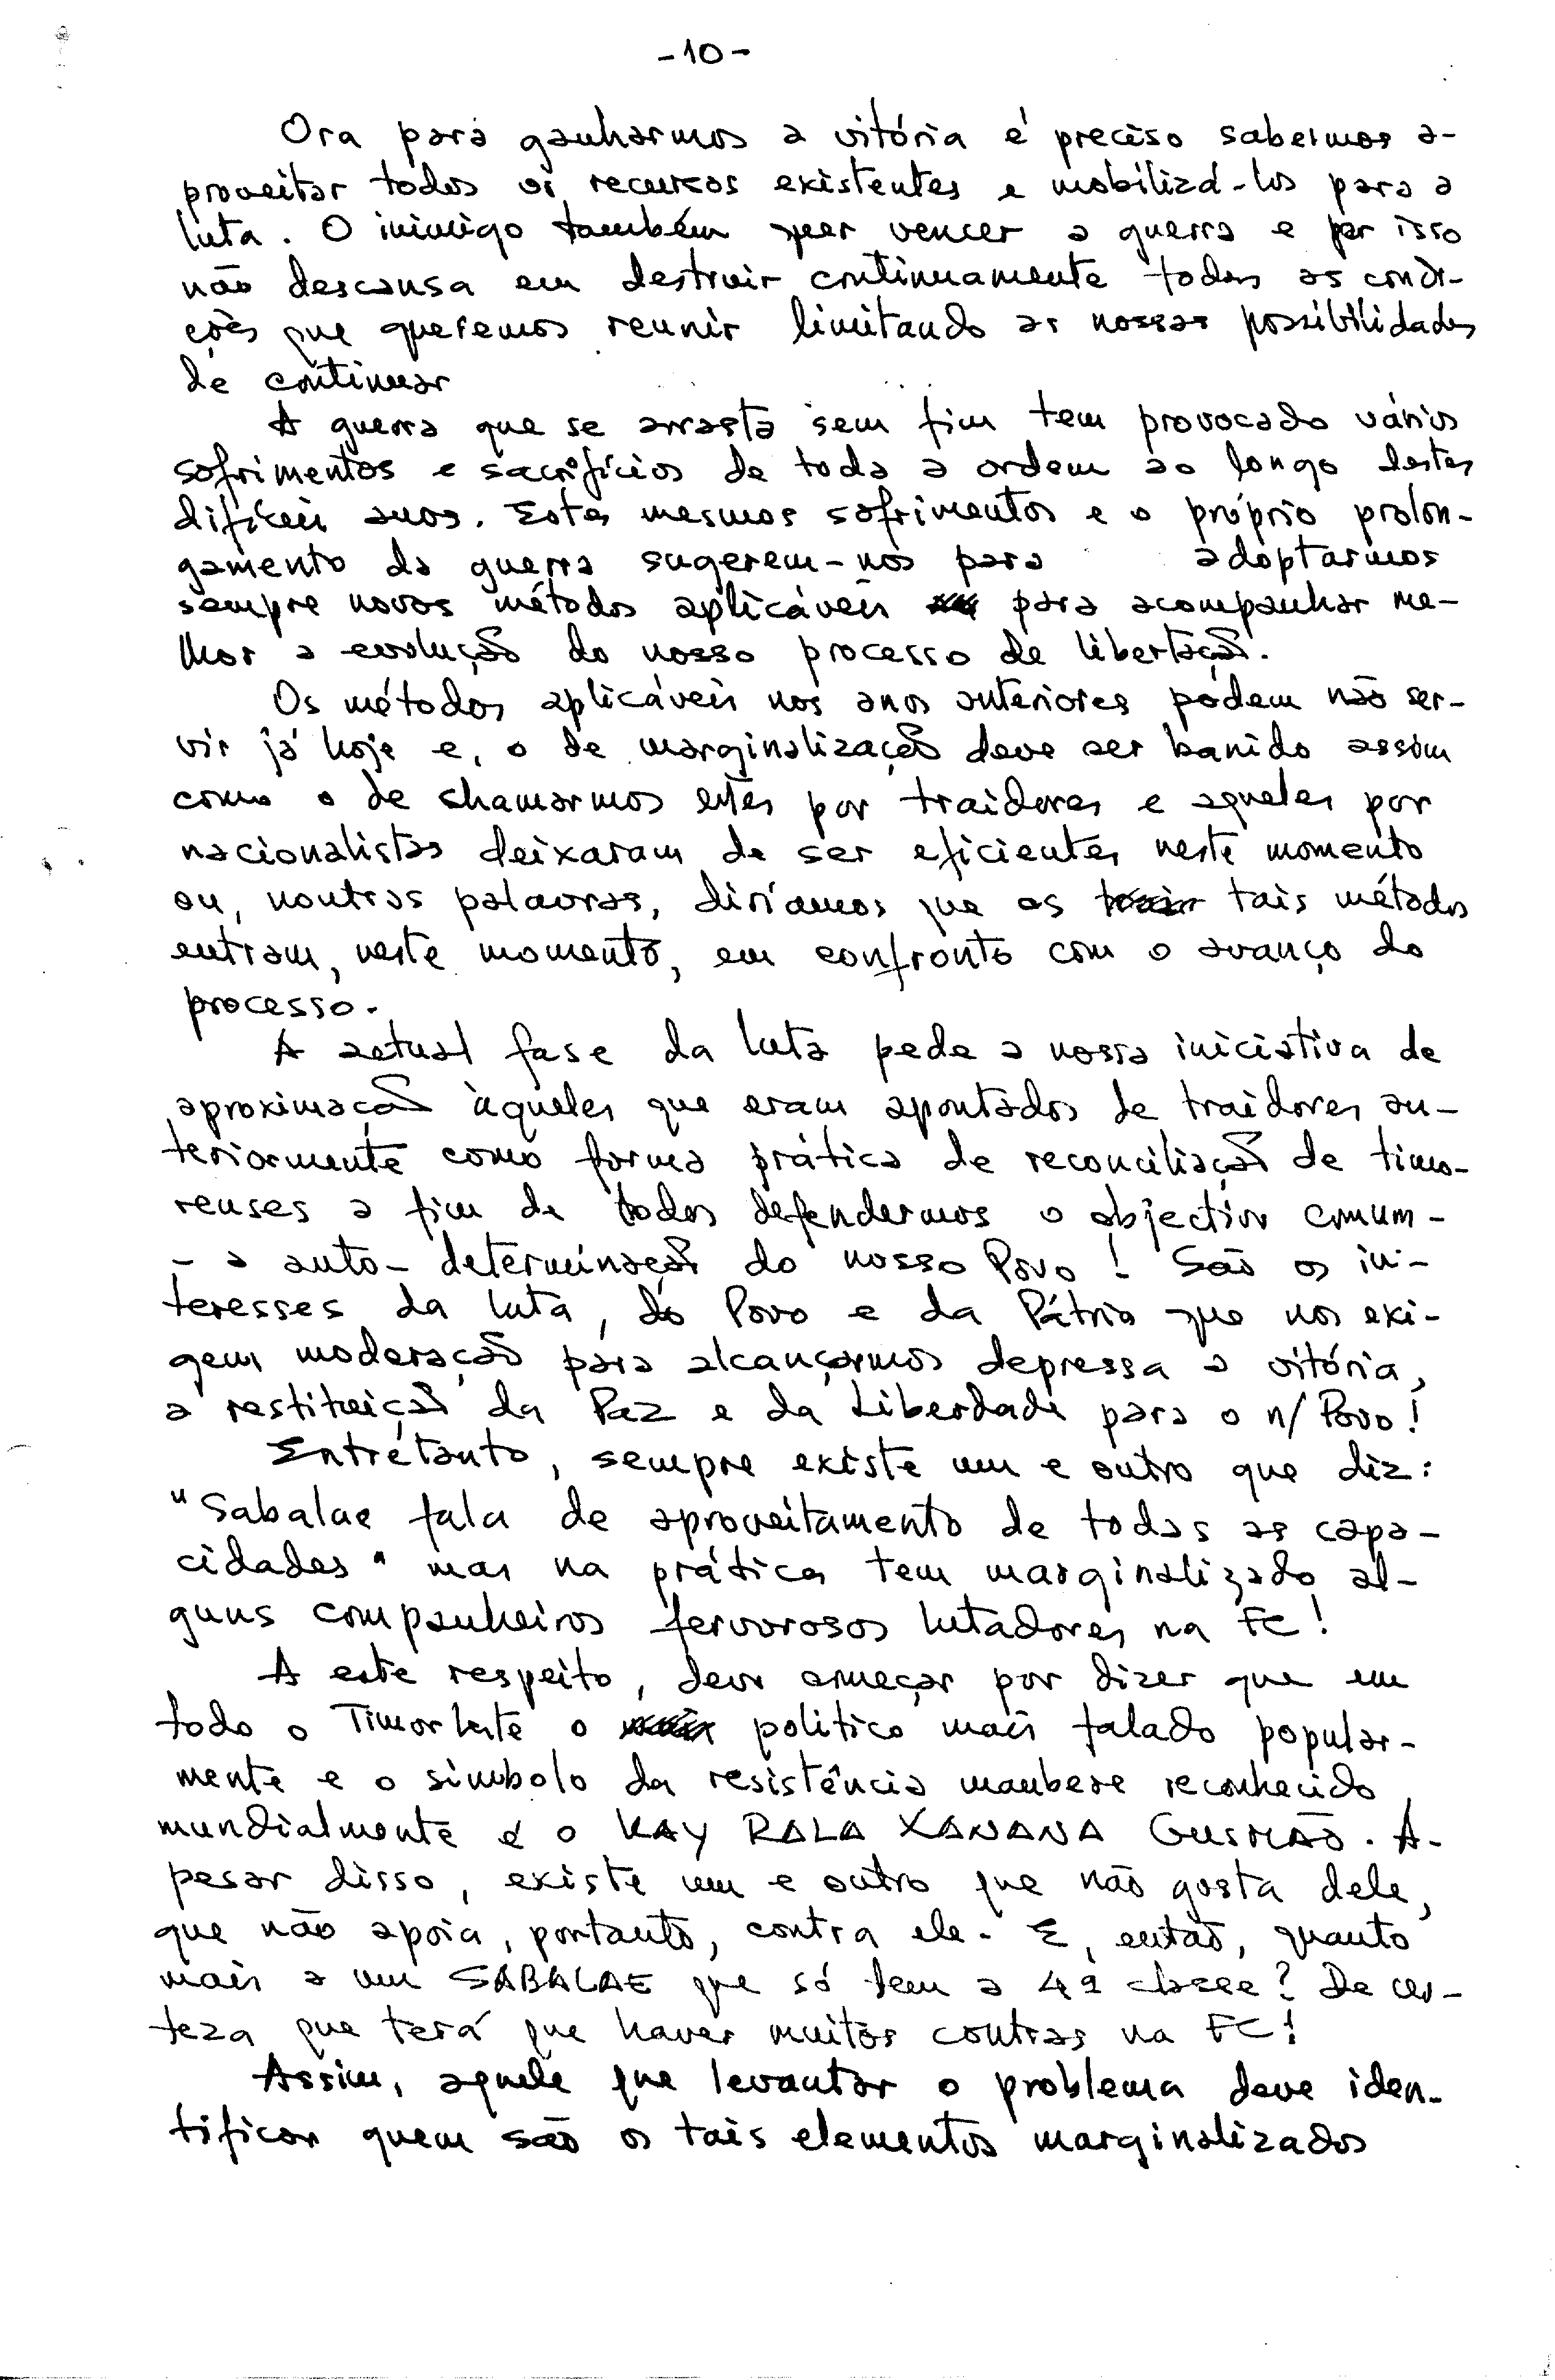 -10-
Ora para ganharmos a vitória é preciso sabermos a-
proveitar todos os recursos existentes e mobilizá-los para a
luta. O inimigo também quer vencer a guerra e por isso
não descansa em destruir continuamente todas as condi-
ções que queremos reunir limitando as nossas possibilidades
de continuar
A guerra que se arrasta sem fim tem provocado vários
sofrimentos e sacrifícios de toda a ordem ao longo destes
difíceis anos. Estes mesmos sofrimentos e o próprio prolon-
gamento da guerra sugerem-nos para adoptarmos
sempre novos métodos aplicáveis para acompanhar me-
lhor a evolução do nosso processo de libertação.
Os métodos aplicáveis nos anos anteriores podem não ser-
vir já hoje e, o de marginalização deve ser banido assim
como o de chamarmos estes por traidores e aqueles por
nacionalistas deixaram de ser eficientes neste momento
ou, noutras palavras, diríamos que os tais métodos
entram, neste momento, em confronto com o avanço do
processo.
A actual fase da luta pede a nossa iniciativa de
aproximação àqueles que eram apontados de traidores an-
teriormente como forma prática de reconciliação de timo-
renses a fim de todos defendermos o objectivo comum-
- a auto-determinação do nosso Povo! São os in-
teresses da luta, do Povo e da Pátria que nos exi-
gem moderação para alcançarmos depressa a vitória,
a restituição da Paz e da Liberdade para o n/ Povo!
Entretanto, sempre existe um e outro que diz:
"Sabalae fala de aproveitamento de todas as capa-
cidades" mas na prática tem marginalizado al-
guns companheiros fervorosos lutadores na FC!
A este respeito, devo começar por dizer que em
todo o Timor Leste o politico mais falado popular-
mente e o simbolo da resistência maubere reconhecido
mundialmente é o KAY RALA XANANA GUSMÃO. A-
pesar disso, existe um e outro que não gosta dele,
que não apoia, portanto, contra ele. E, então, quanto
mais a um SABALAE que só tem a 4ª classe? De cer-
teza que terá que haver muitos contras na FC!
Assim, aquele que levantar o problema deve iden-
tificar quem são os tais elementos marginalizados